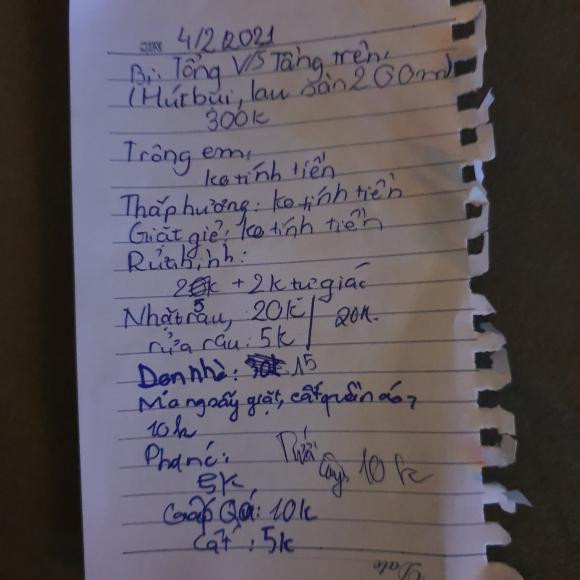 4/2/2021
Bi: Tổng V/S Tầng trên,
(Hút bụi, lau sàn 200m)
300k
Trông em,
ko tính tiền
Thắp hương: ko tính tiền
Giặt giẻ: ko tính tiền
Rửa
5k + 2k tự giác
Nhặt rau, 20k
20k.
rửa rau: 5k
Dọn nhà: 15
Mang sấy giặt, cất quần áo,
10k
Pha
5k
10k
Gấp QA: 10k
Cất: 5k
Date